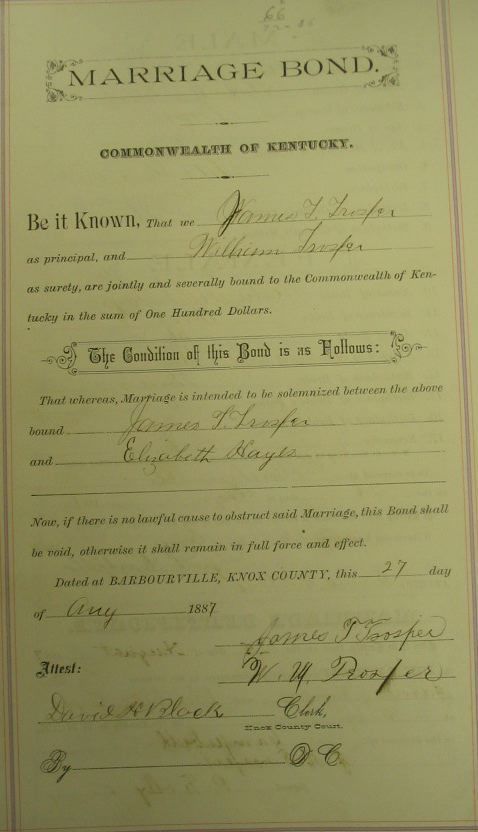 66
MARRIAGE BOND.
COMMONWEALTH OF KENTUCKY.
Be it Known, That we James T. Trosper
as principal, and William Trosper
as surety, are jointly and severally bound to the Commonwealth of Ken-
tucky in the sum of One Hundred Dollars.
The Condition of this Bond is as Follows:
That whereas, Marriage is intended to be solemnized between the above
bound James T. Trosper
and Elizabeth Hayes
Now, if there is no lawful cause to obstruct said Marriage, this Bond shall
be void, otherwise it shall remain in full force and effect.
Dated at BARBOURVILLE, KNOX COUNTY, this 27 day
of Aug 1887
James T Trosper
Attest: W. M. Trosper
David H Black Clerk,
Knox County Court.
By D. C.